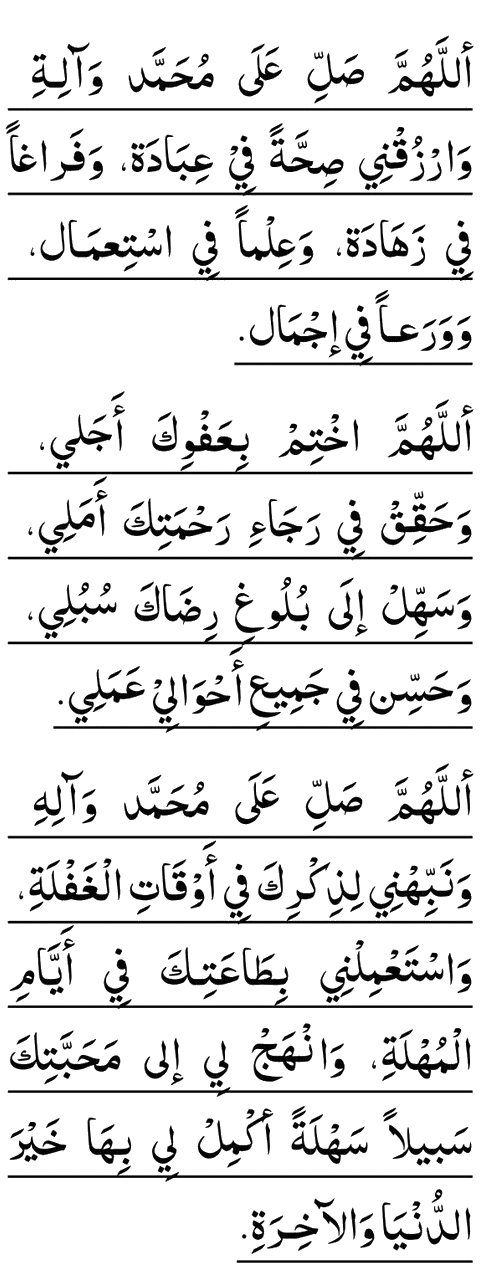 أللَّهُمَّ صَلِّ عَلَى مُحَمَّد وَآلِـةِ
وَارْزُقْنِي صِحَّةً فِيْ عِبَادَة، وَفَراغاً
فِي زَهَادَة، وَعِلْماً فِي اسْتِعمَـال،
وَوَرَعـاً فِي إجْمَال.
أللَّهُمَّ اخْتِمْ بِعَفْوِكَ أَجَلي،
وَحَقِّقْ فِي رَجَاءِ رَحْمَتِكَ أَمَلِي،
وَسَهِّلْ إلَى بُلُوغِ رِضَاكَ سُبُلِي،
وَحَسِّن فِي جَمِيعِ أَحْوَالِيْ عَمَلِي.
أللَّهُمَّ صَلِّ عَلَى مُحَمَّد وَآلِهِ
وَنَبِّهْنِي لِذِكْرِكَ فِي أَوْقَاتِ الْغَفْلَةِ،
وَاسْتَعْمِلْنِي بِـطَاعَتِـكَ فِي أَيَّامِ
الْمُهْلَةِ، وَانْهَجْ لِي إلى مَحَبَّتِكَ
سَبيلاً سَهْلَةً أكْمِلْ لِي بِـهَا خَيْرَ
الدُّنْيَا وَالآخِـرَةِ.